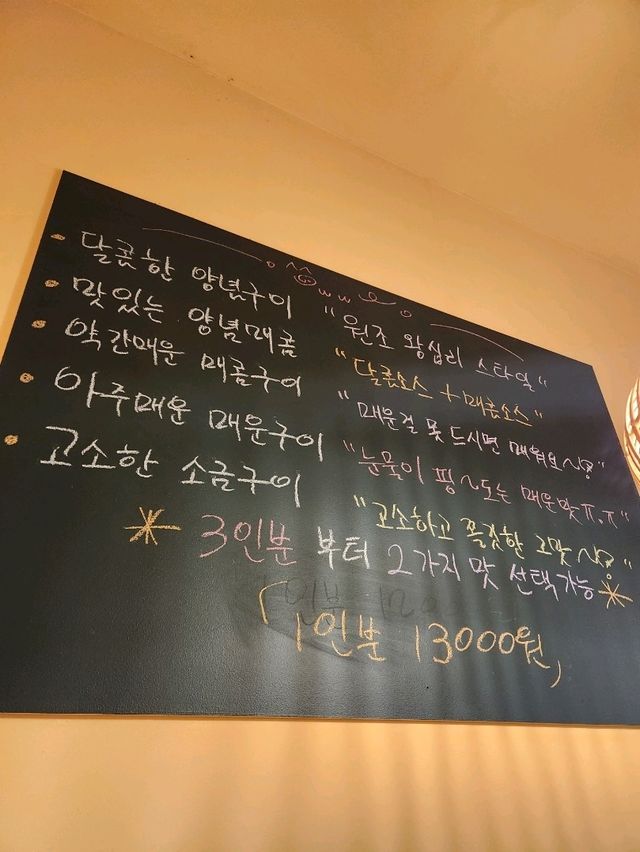 달콤한 양념구이 "원조 왕십리 스타일"
맛있는 양념매콤 "달콤소스 + 매콤소스"
약간매운 매콤구이 "매운걸 못 드시면 매워요~!"
아주매운 매운구이 "눈물이 핑~도는 매운맛ㅠ.ㅠ"
고소한 소금구이 "고소하고 쫄깃한 고맛~!"
* 3인분 부터 2가지 맛 선택가능 *
「1인분 13000원」